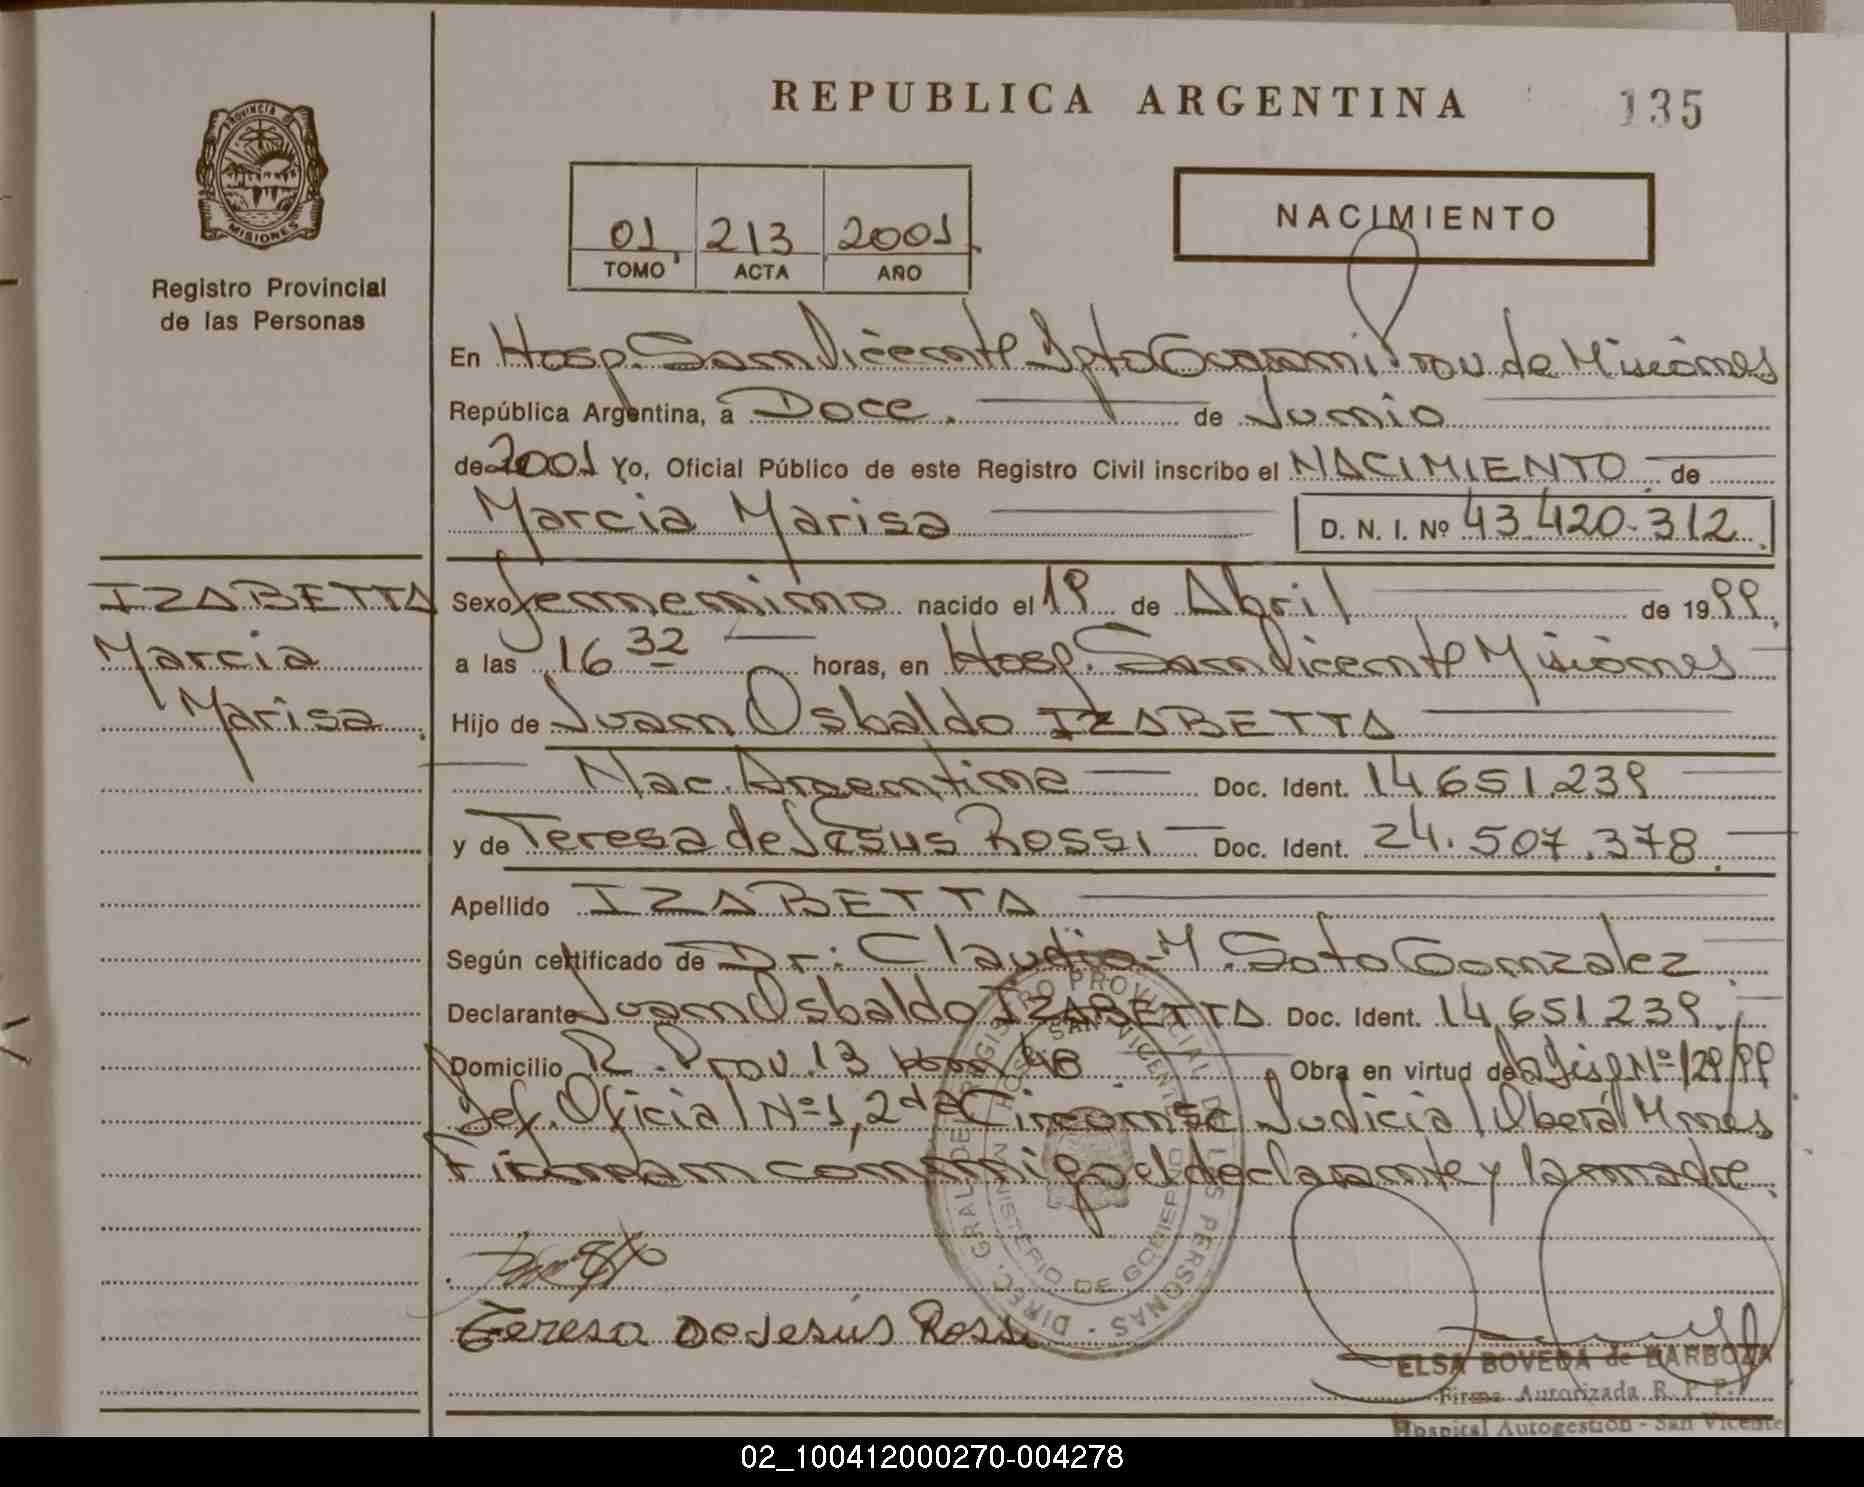 REPUBLICA ARGENTINA
135
PROVINCIA DE
MISIONES
Registro Provincial
de las Personas
01 213 2001
TOMO ACTA AÑO
NACIMIENTO
En Hosp. San Vicente Dpto Guarani Prov. de Misiones
República Argentina, a Doce. de Junio
de 2001 Yo, Oficial Público de este Registro Civil inscribo el NACIMIENTO de
Marcia Marisa
D. N. I. Nº 43.420.312
IZABETTA
Marcia
Marisa
Sexo femenino nacido el 19 de Abril de 1999
a las 16 32 horas, en Hosp. San Vicente Misiones
Hijo de Juan Osbaldo IZABETTA
Nac. Argentina Doc. Ident. 14.651.239
y de Teresa de Jesus Rossi Doc. Ident. 24.507.378
Apellido IZABETTA
Según certificado de Dr: Claudio M. Soto Gonzalez
Declarante Juan Osbaldo IZABETTA Doc. Ident. 14.651.239
Domicilio R. Prov. 13 km 48 Obra en virtud de la Disp Nº 129/99
Def. Oficial Nº 1, 2da Circonsc Judicial Oberá Mnes
Firman conmigo el declarante y la madre.
Teresa De Jesús Rossi
DIREC. GRAL. DE REGISTRO PROVINCIAL DE LAS PERSONAS
MINISTERIO DE GOBIERNO
HOSP. SAN VICENTE
ELSA BOVEDA de BARBOZA
Firma Autorizada R. P. P.
Hospital Autogestión - San Vicente
02_100412000270-004278